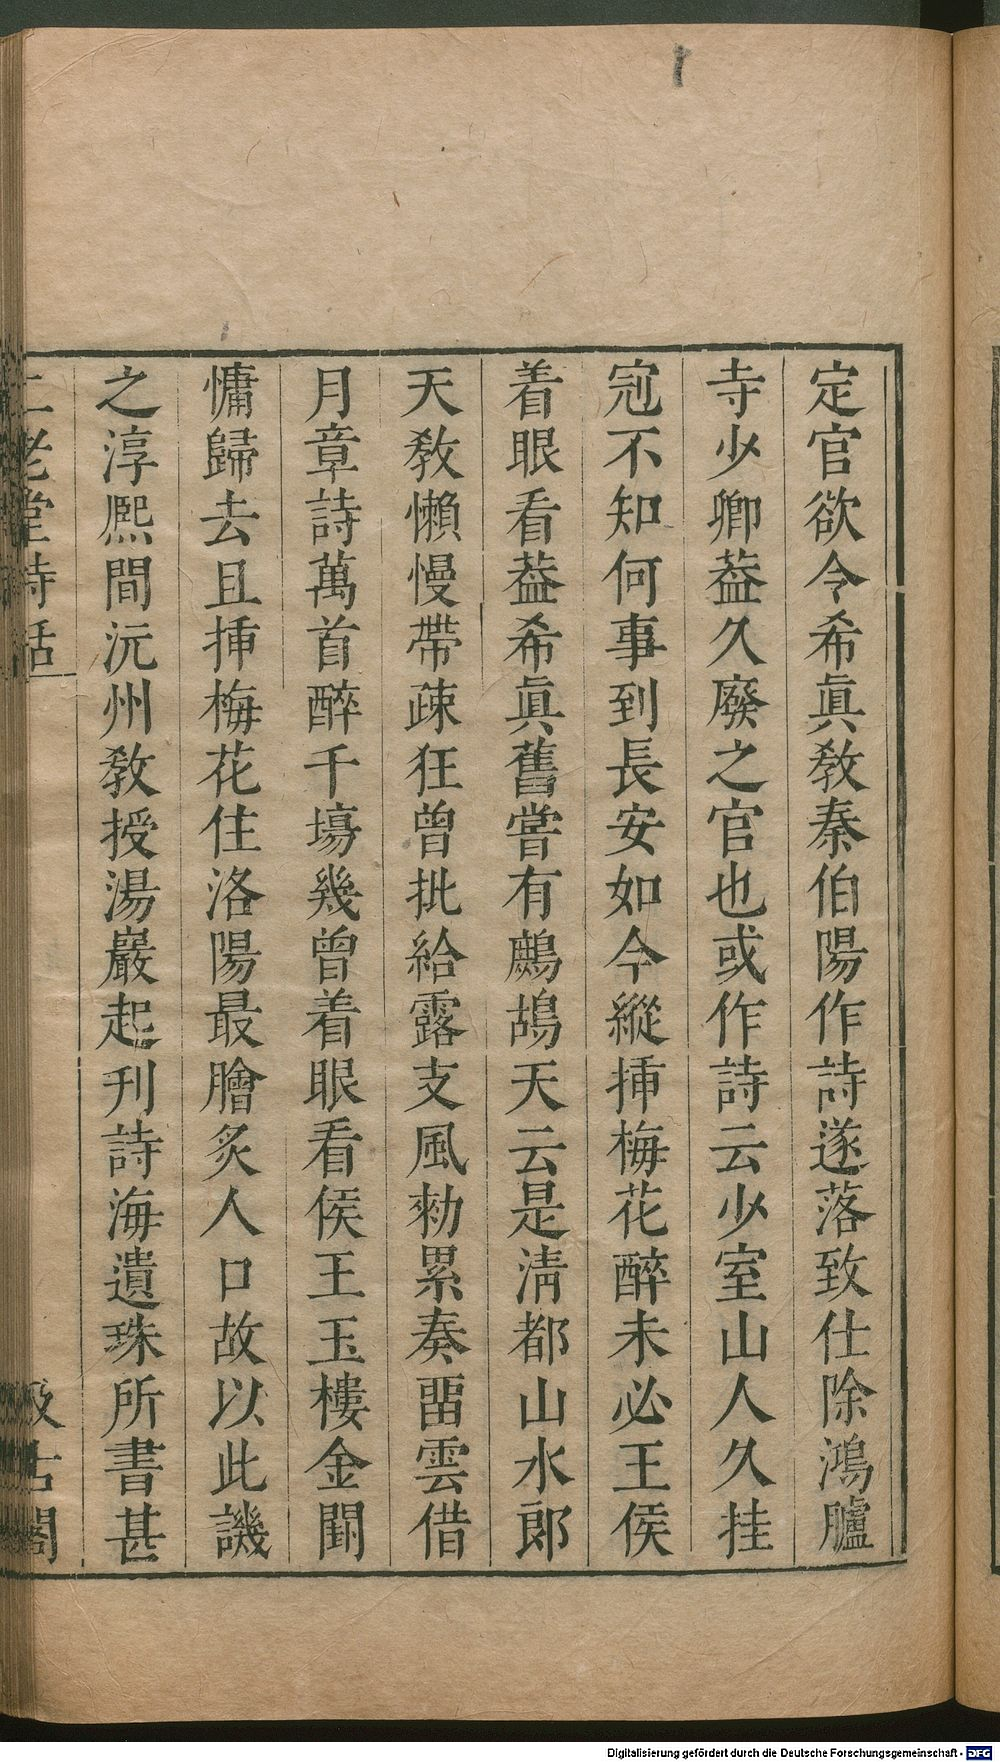 定官欲令希眞敎秦伯陽作詩遂落致仕除鴻臚
寺少卿葢久廢之官也或作詩云少室山人久挂
冠不知何事到長安如今縱揷梅花醉未必王侯
着眼看葢希眞舊嘗有鷓鴣天云是淸都山水郎
天敎懶慢帶疎狂曾批給露支風勑累奏畱雲借
月章詩萬首醉千塲幾曾着眼看侯王玉樓金闕
慵歸去且揷梅花住洛陽最膾炙人口故以此譏
之淳熙間沅州敎授湯巖起刊詩海遺珠所書甚
二老堂詩話
汲古閣
Digitalisierung gefördert durch die Deutsche Forschungsgemeinschaft - DFG